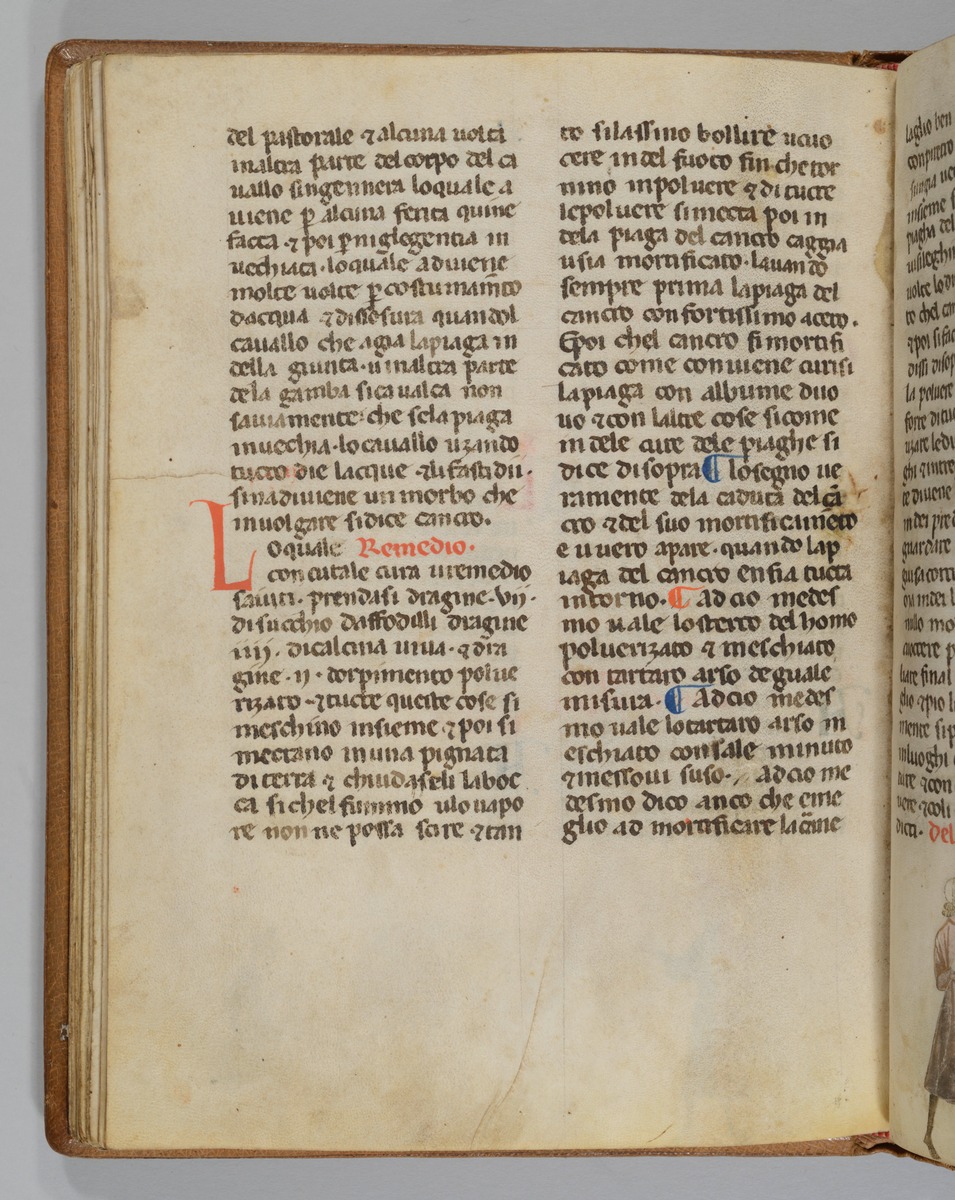 del pastorale ⁊ alcuna uolta
inaltra parte del corpo del ca
uallo singennera loquale a
uiene ꝑ alcuna ferita quine
facta · ⁊ poi ꝑ niglegentia in
uechiata · loquale adiuiene
molte uolte ꝑ costumam̄to
dacqua ⁊ dissosura quandol
cauallo che agia lapiaga in
della giunta · u inaltra parte
dela gamba sicaualca non
sauiamente · che sela piaga
inuechia · locauallo uzando
tucto die lacque · ⁊li fastidii ·
sinadiuiene un morbo che
inuolgare sidice cancro.
Loquale Remedio ·
concutale cura uremedio
saiuti · prendasi dragine · vij ·
di succhio daffodilli dragine
iiij · dicalcina uiua · ⁊ dra
gine · ij · dorpimento polue
rizato · ⁊ tucte queste cose si
meschino insieme ⁊ poi si
mectano inuna pignata
di terra ⁊ chiudaseli laboc
ca sichel fummo ulouapo
re non ne possa scire ⁊ tan
to silassino bollire ucuo
cere indel fuoco fin che tor
nino inpoluere ⁊ di tucte
lepoluere simecta poi in
dela piaga del cancro caggia
usia mortificato · lauando
sempre prima lapiaga del
cancro con fortissimo aceto .
Epoi chel cancro fi mortifi
cato come conuiene curisi
lapiaga con albume duo
uo ⁊ con laltre cose sicome
in dele cure dele piaghe si
dice disopra ¶ losegno ue
ramente dela caduta del cā
cro ⁊ del suo mortificam̄eto
e uuero apare · quando lap
iaga del cancro enfia tucta
intorno. ¶ Adcio medes
mo uale losterco del homo
poluerizato ⁊ meschiato
con tartaro arso deguale
misura. ¶ Adcio medes
mo uale lotartaro arso m
eschiato consale minuto
⁊ messoui suso · Adcio me
desmo dico anco che eme
glio ad mortificare la c̄arne